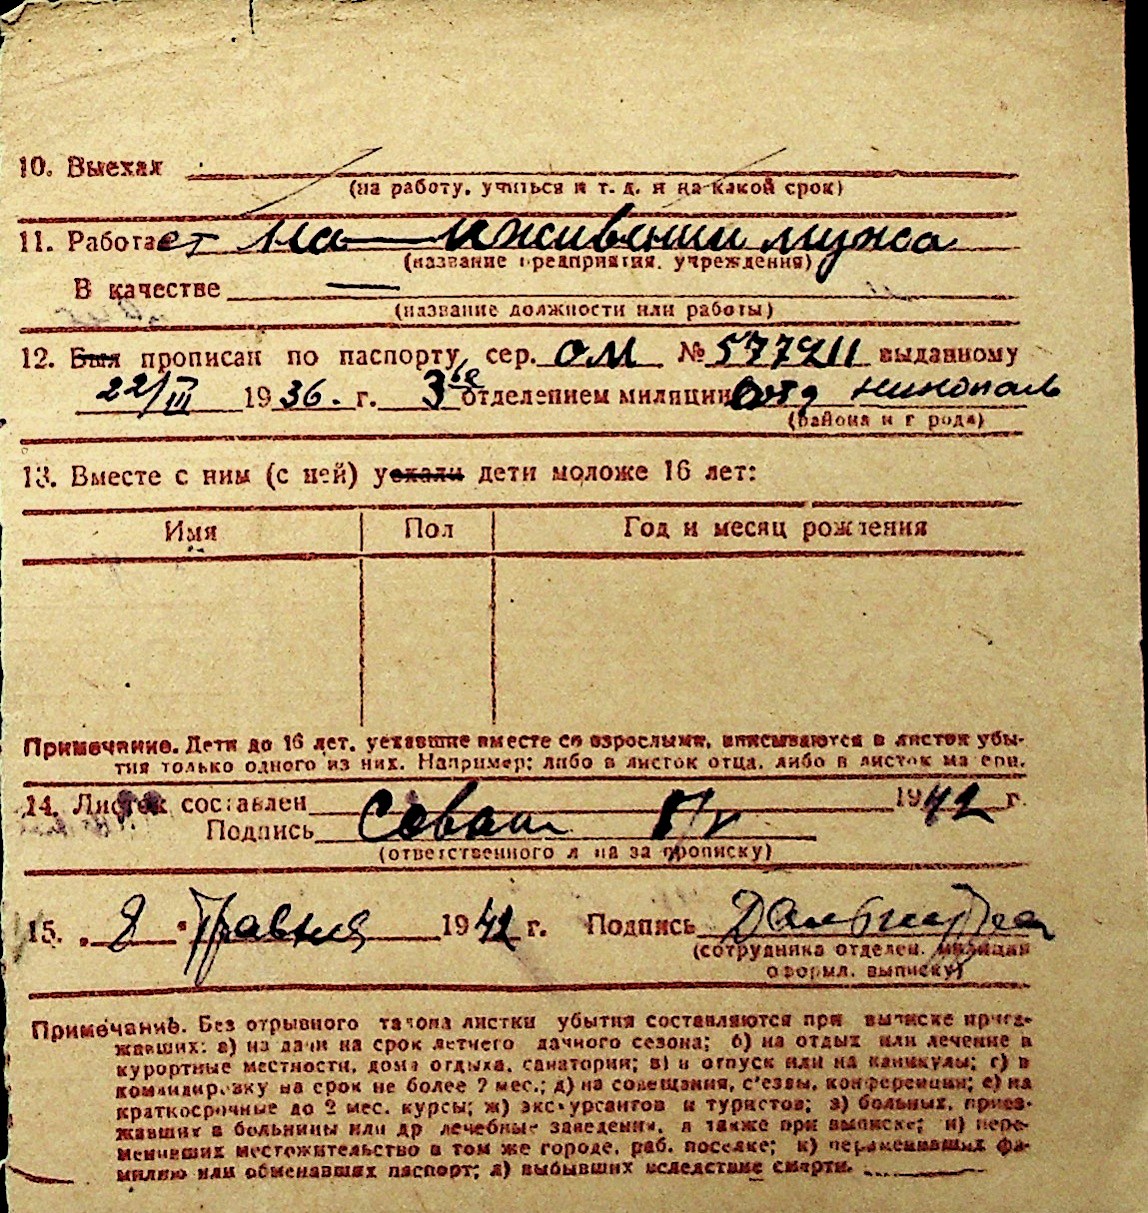 10. Выехал
(на работу, учиться и т. д. и на какой срок)
11. Работает На иживении мужа
(название предприятия, учреждения)
В качестве —
(название должности или работы)
12. Был прописан по паспорту, сер. ОМ № 577211 выданному
22/III 1936. г. 3 отделением милиции Никополь
(района и города)
13. Вместе с ним (с ней) уехали дети моложе 16 лет:
Имя Пол Год и месяц рождения
Примечание. Дети до 16 лет, уехавшие вместе со взрослыми, вписываются в листок убы-
тия только одного из них. Например: либо в листок отца, либо в листок матери.
14. Листок составлен 1942 г.
Подпись
(ответственного лица за прописку)
15. „8" Травня 1942 г. Подпись
(сотрудника отделен. милиции
оформл. выписку)
Примечание. Без отрывного талона листки убытия составляются при выписке приез-
жавших: а) на дачи на срок летнего дачного сезона; б) на отдых или лечение в
курортные местности, дома отдыха, санатории; в) в отпуск или на каникулы; г) в
командировку на срок не более 2 мес.; д) на совещания, с'езды, конференции; е) на
краткосрочные до 2 мес. курсы; ж) экскурсантов и туристов; з) больных, приез-
жавших в больницы или др лечебные заведения, а также при выписке; и) пере-
менивших местожительство в том же городе, раб. поселке; к) переменивших фа-
милию или обменявших паспорт; л) выбывших вследствие смерти.